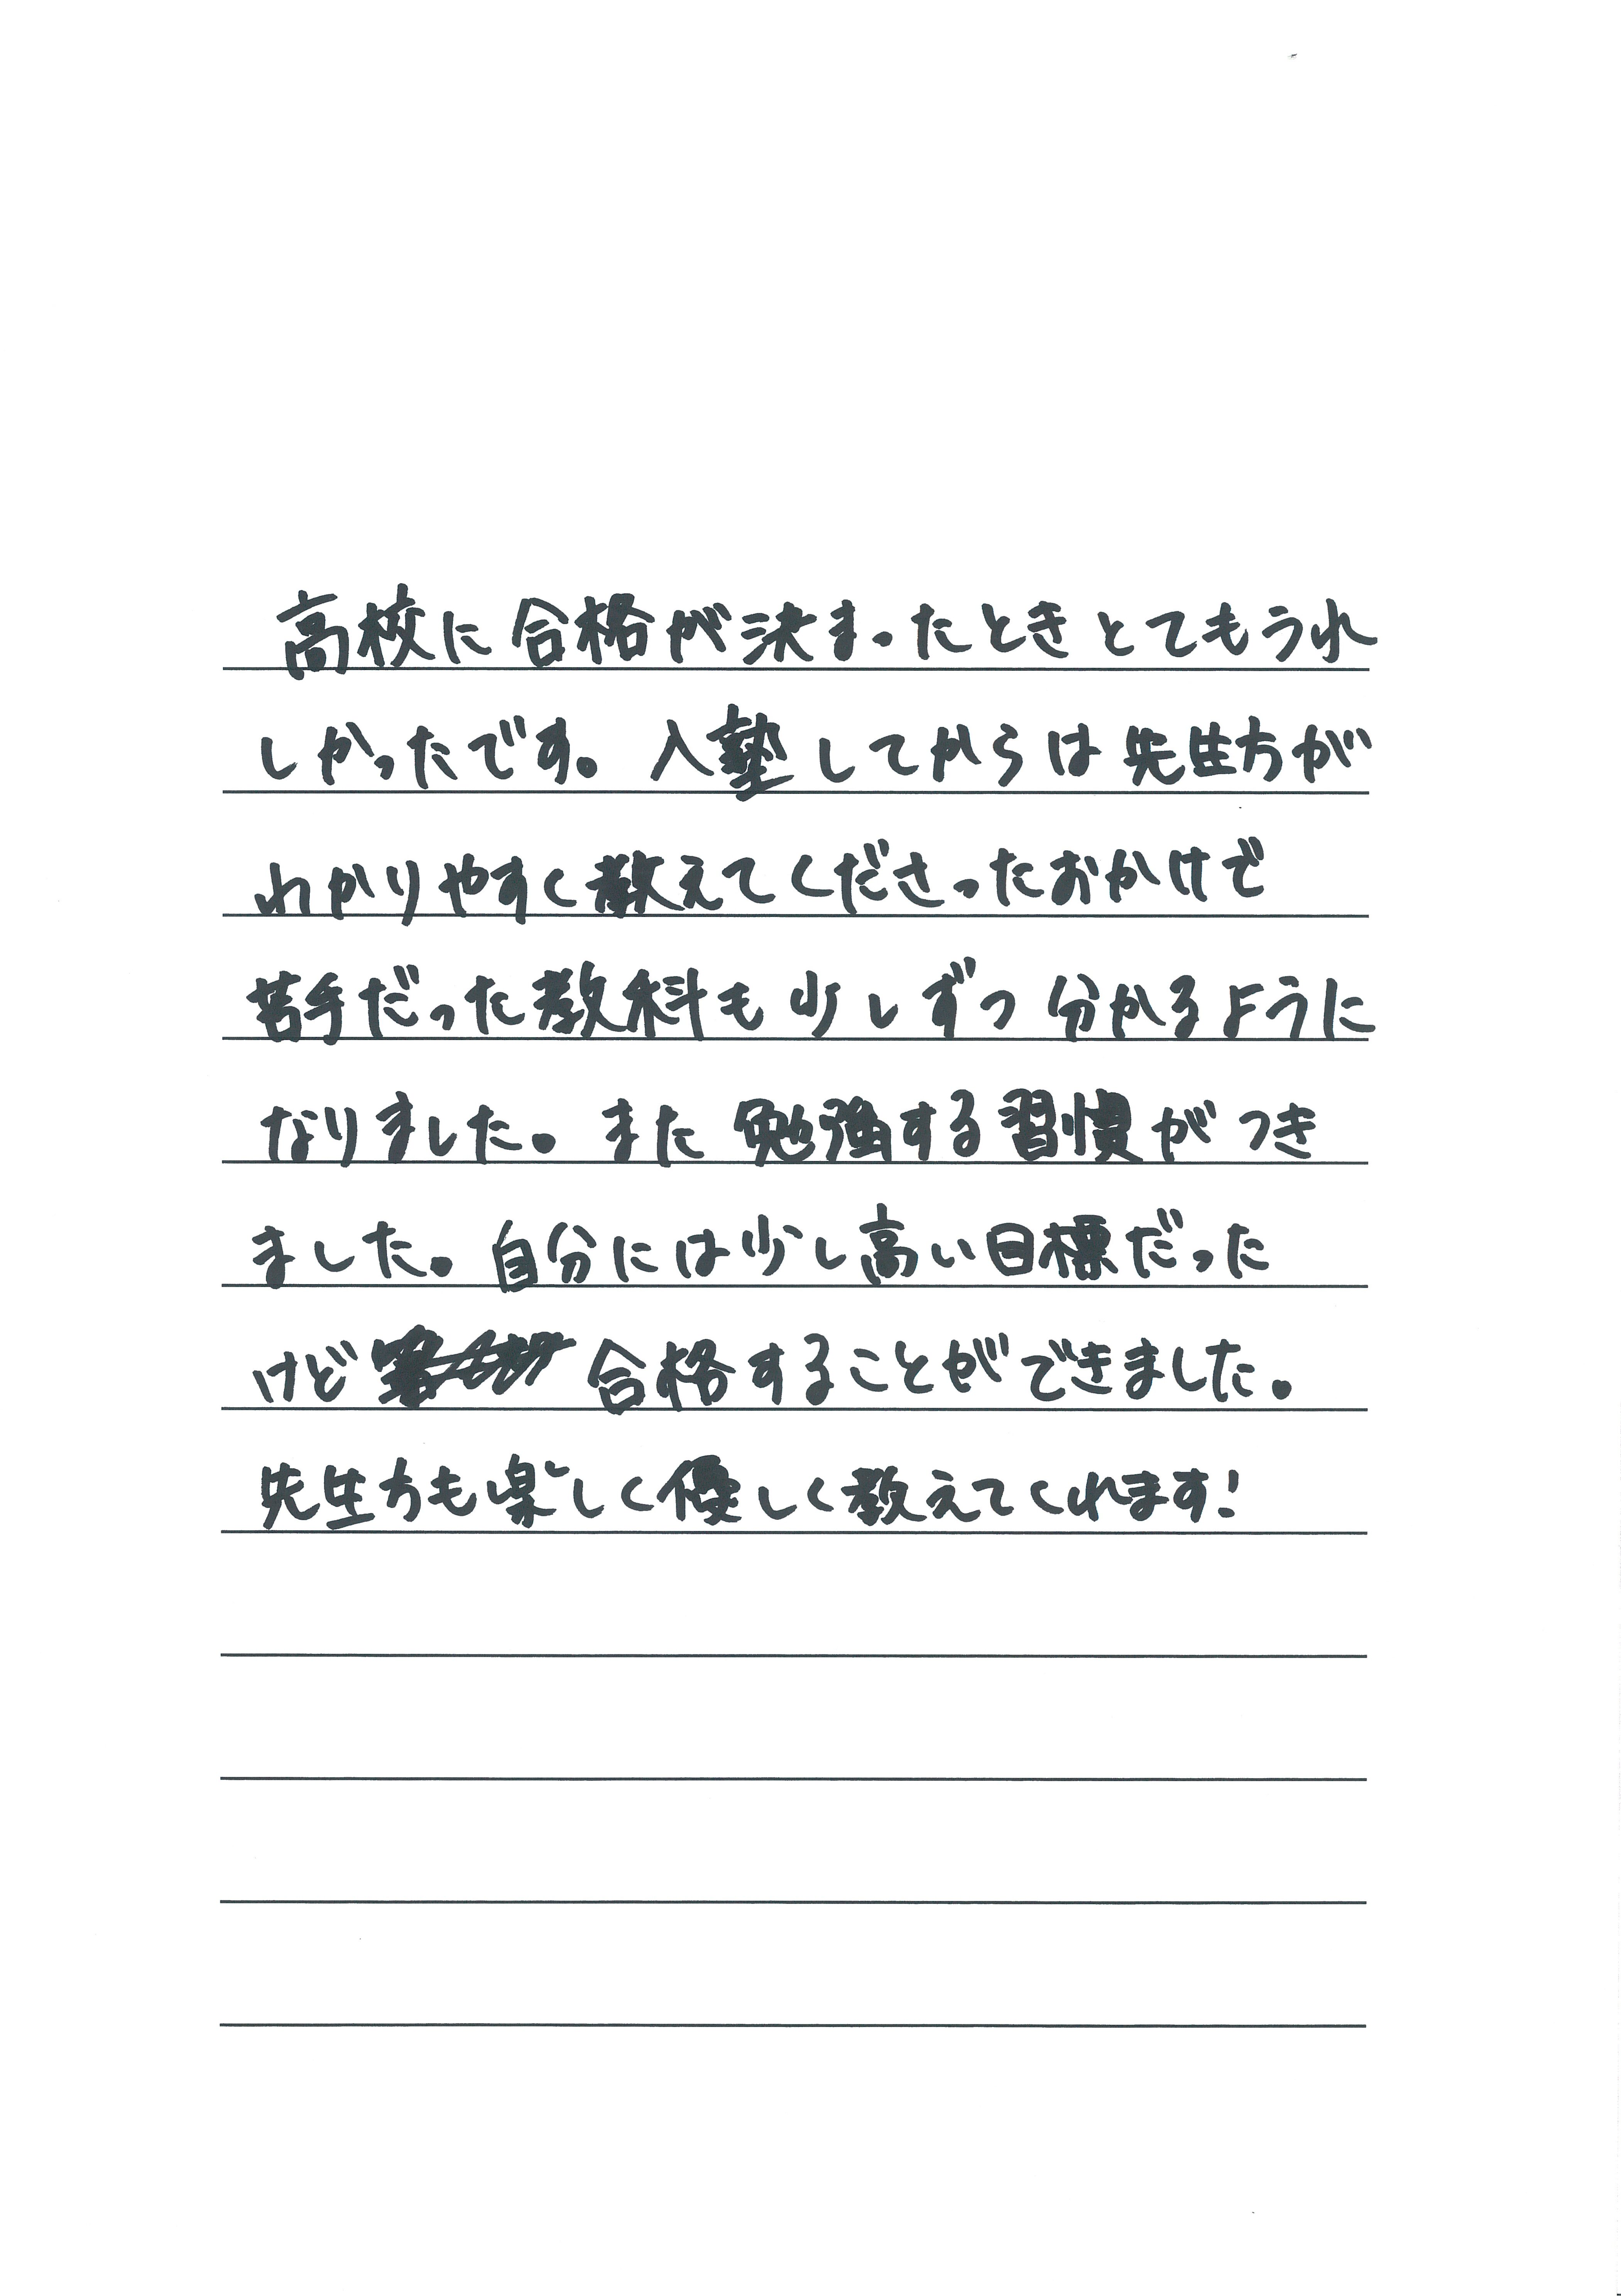 高校に合格が決まったときとてもうれ
しかったです。入塾してからは先生方が
わかりやすく教えてくださったおかけで
苦手だった教科も少しずつ分かるように
なりました。また勉強する習慣がつき
ました。自分には少し高い目標だった
けど合格することができました。
先生方も楽しく優しく教えてくれます!